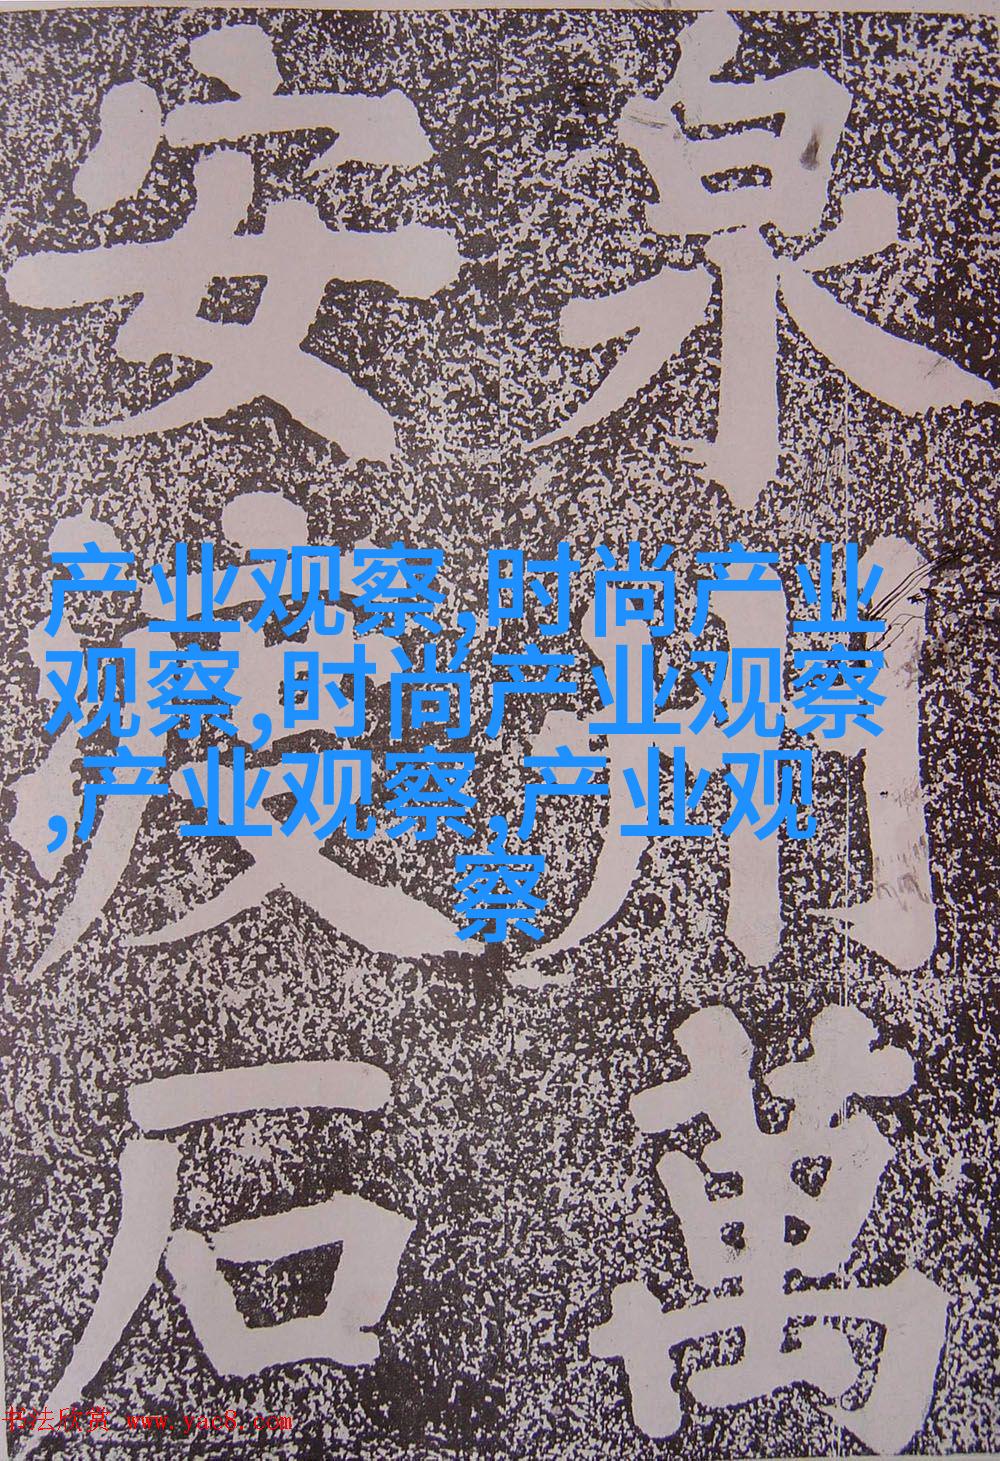 泉州萬
安渡石
产业观察,时尚产业
观察,时尚产业观察
,产业观察,产业观
察
书法欣赏 www.yac8.com